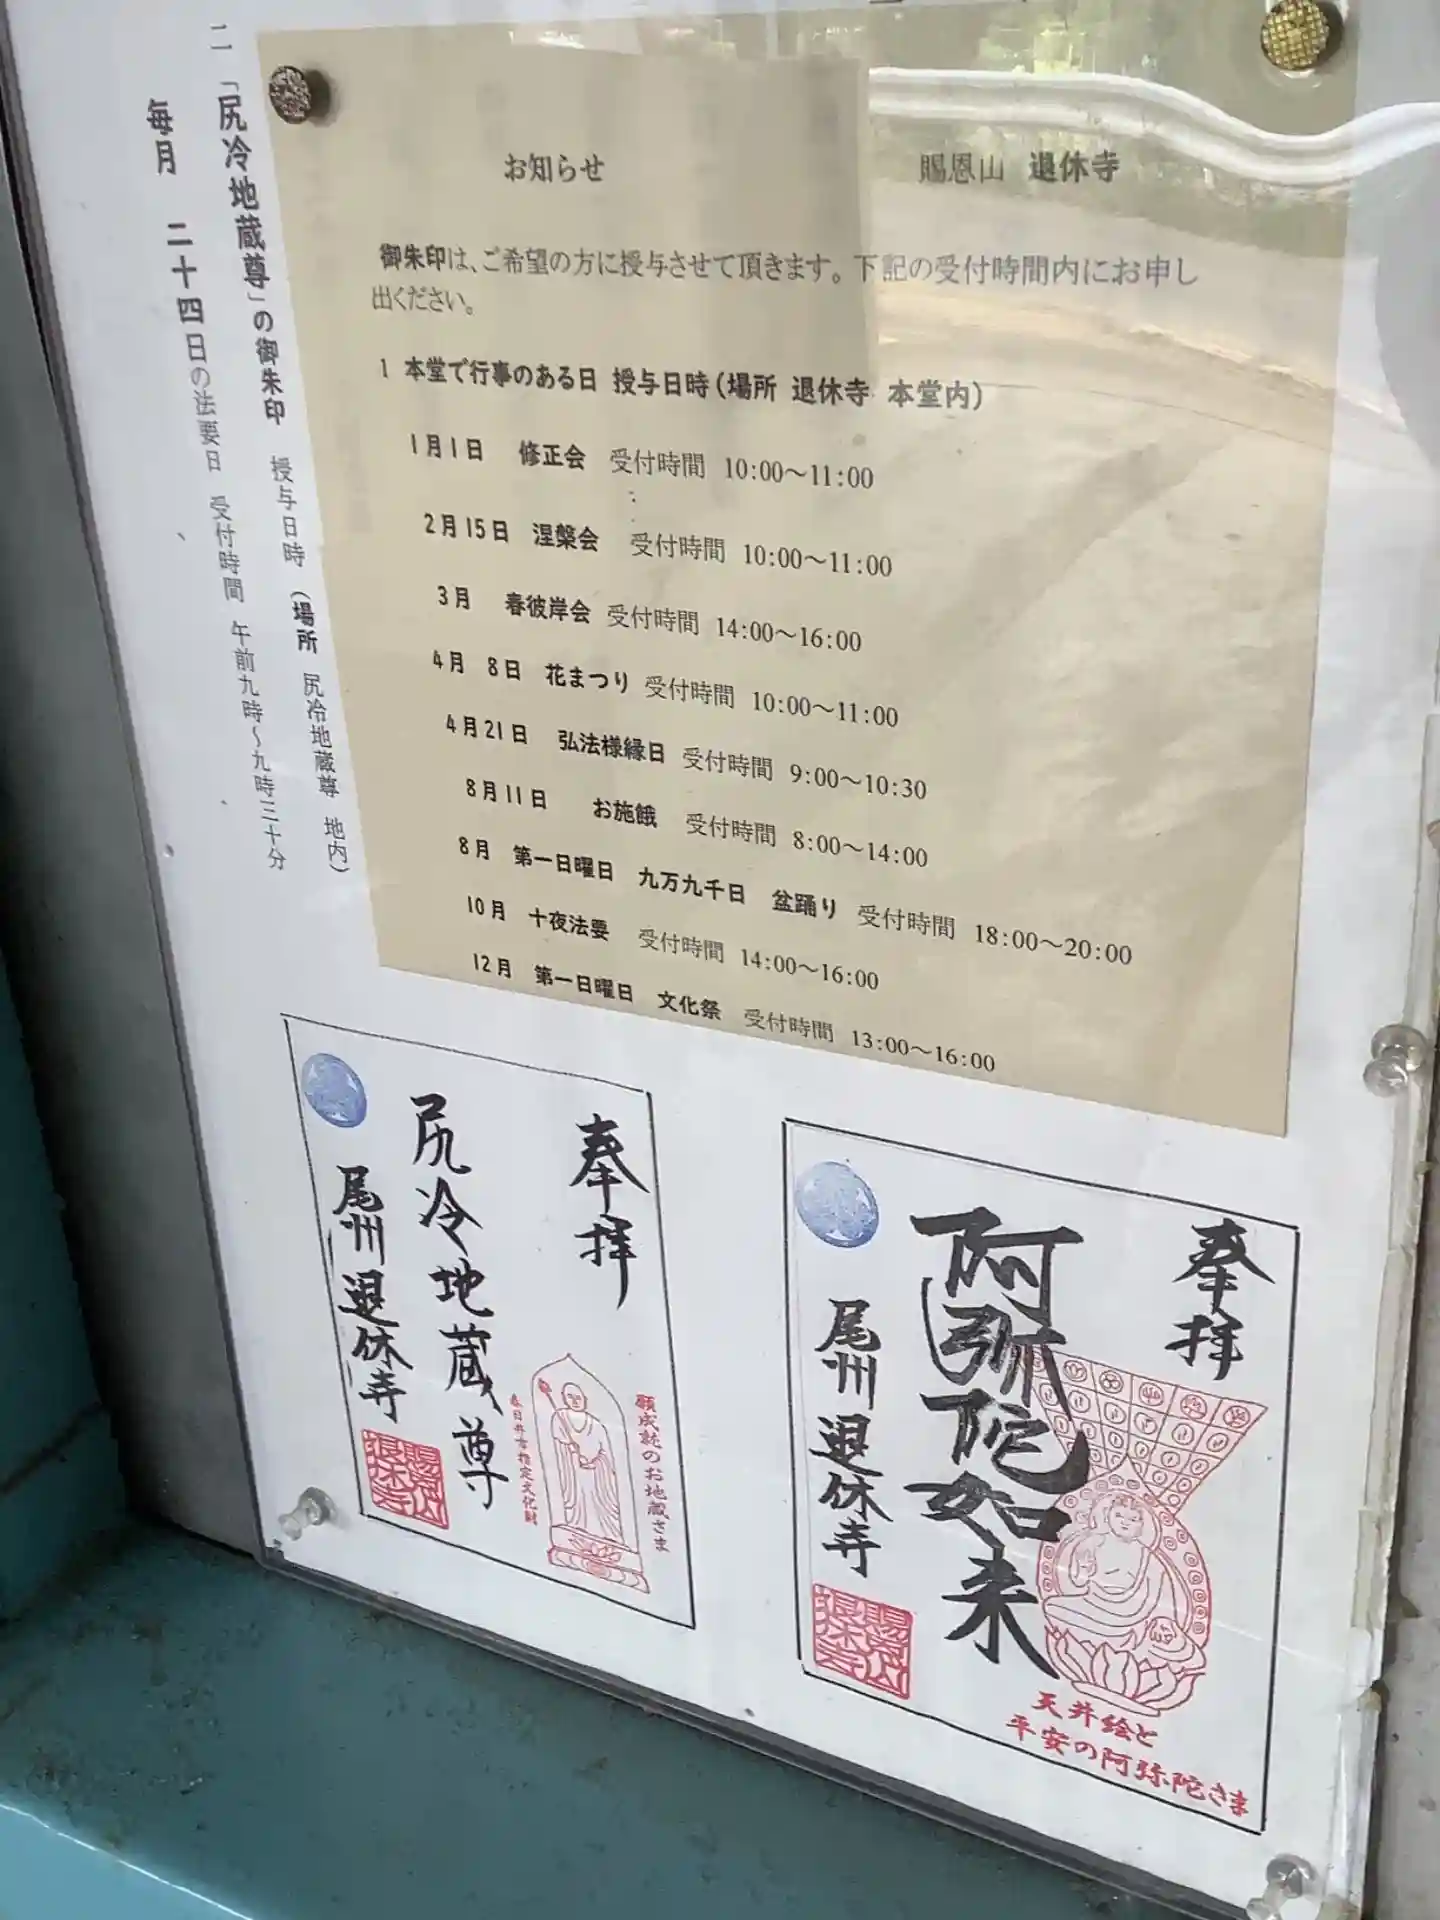 お知らせ　賜恩山　退休寺
御朱印は、ご希望の方に授与させて頂きます。下記の受付時間内にお申し
出ください。
1 本堂で行事のある日 授与日時(場所 退休寺 本堂内)
1月1日 修正会 受付時間 10:00～11:00
2月15日 涅槃会 受付時間 10:00～11:00
3月 春彼岸会 受付時間 14:00～16:00
4月 8日 花まつり 受付時間 10:00～11:00
4月21日 弘法様縁日 受付時間 9:00～10:30
8月11日 お施餓 受付時間 8:00～14:00
8月 第一日曜日 九万九千日 盆踊り 受付時間 18:00～20:00
10月 十夜法要 受付時間 14:00～16:00
12月 第一日曜日 文化祭 受付時間 13:00～16:00
二 「尻冷地蔵尊」の御朱印 授与日時 (場所 尻冷地蔵尊 地内)
毎月 二十四日の法要日 受付時間 午前九時～九時三十分
奉拝
阿弥陀如来
尾州退休寺
賜恩山
退休寺
天井絵と
平安の阿弥陀さま
奉拝
願成就のお地蔵さま
春日井市指定文化財
尻冷地蔵尊
尾州退休寺
賜恩山
退休寺